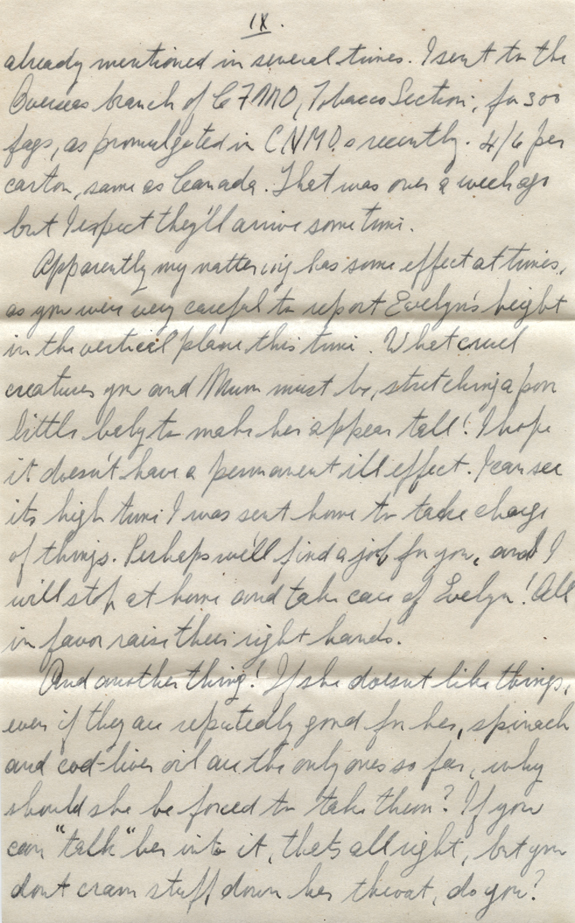 IX.
already mentioned in several times. I sent to the
Overseas branch of C F M O, Tobacco Section, for 300
fags, as promulgated in C.N.M.O.s recently. 4/6 per
carton, same as Canada. That was over a week ago
but I expect they'll arrive some time.
Apparently my nattering has some effect at times,
as you were very careful to report Evelyn's height
in the vertical plane this time. What cruel
creatures you and Mum must be, stretching a poor
little baby to make her appear tall! I hope
it doesn't have a permanent ill effect. I can see
its high time I was sent home to take charge
of things. Perhaps we'll find a job for you, and I
will stop at home and take care of Evelyn! All
in favor raise their right hands.
And another thing! If she doesn't like things,
even if they are reputedly good for her, spinach
and cod-liver oil are the only ones so far, why
should she be forced to take them? If you
can "talk" her into it, thets all right, but you
dont cram stuff down her throat, do you?